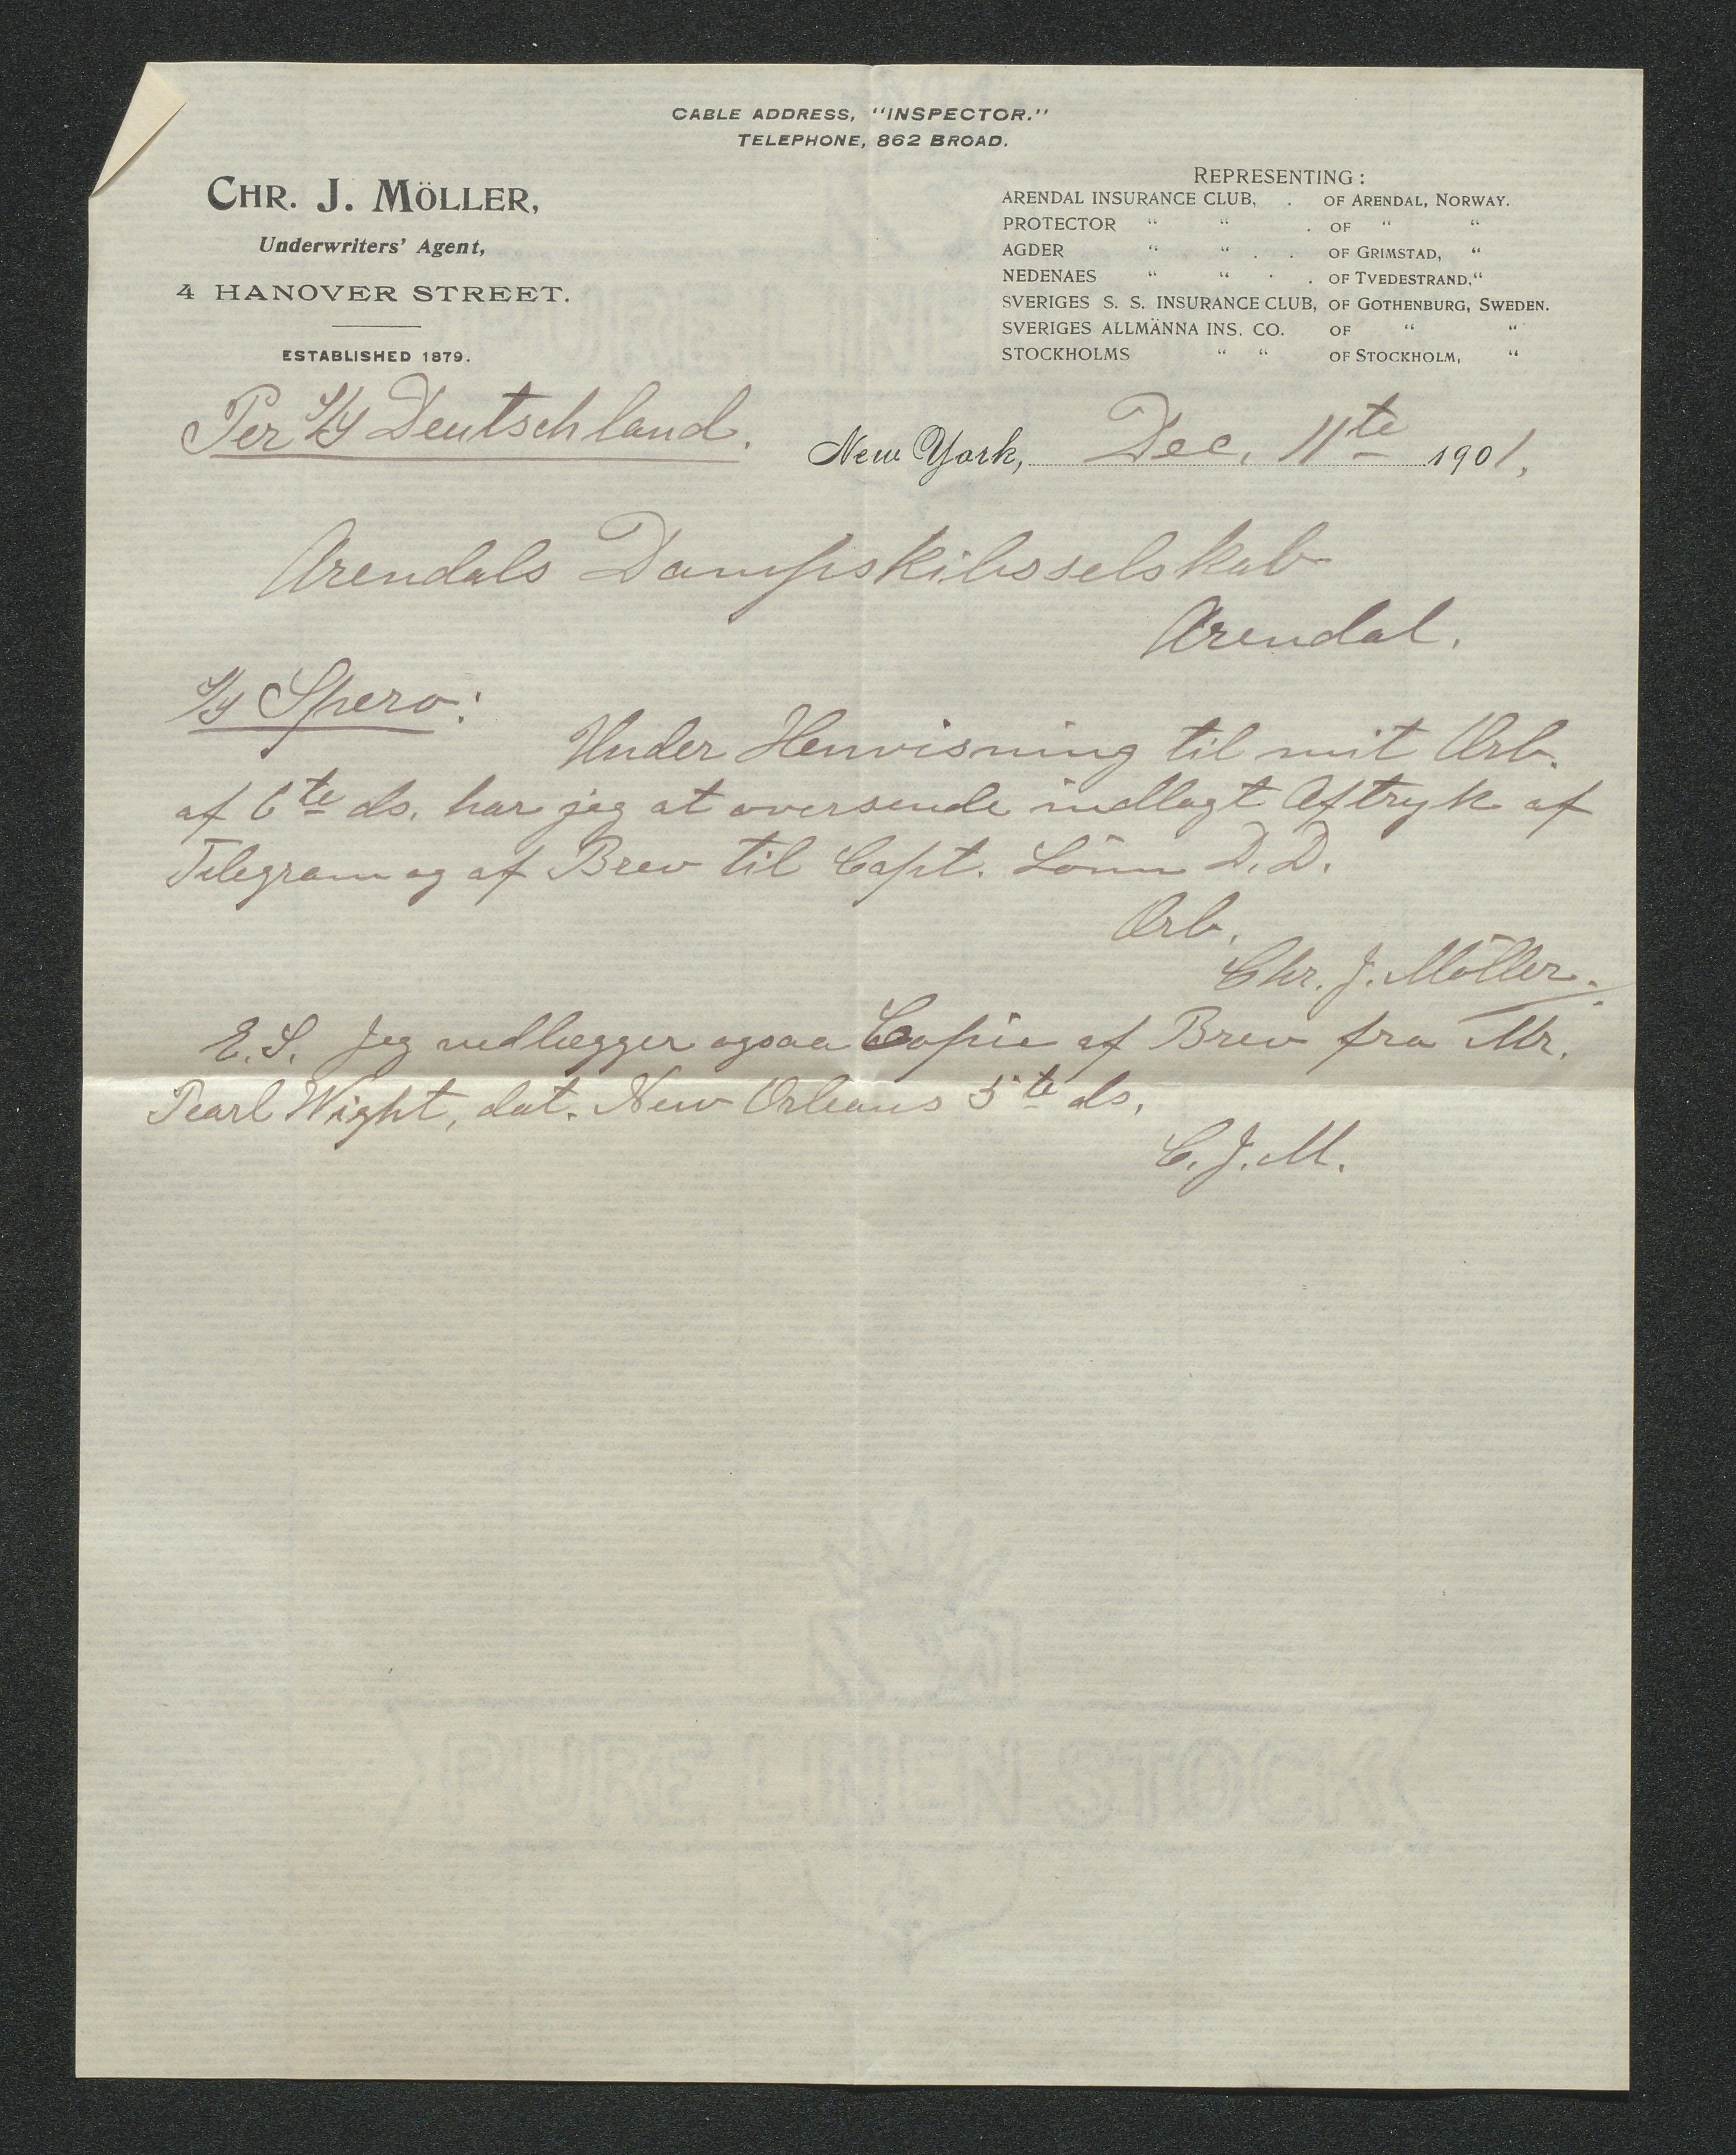 CABLE ADDRESS, "INSPECTOR."
TELEPHONE, 862 BROAD.
CHR. J. MÖLLER,
Underwriters' Agent,
4 HANOVER STREET.
ESTABLISHED 1879.
REPRESENTING:
ARENDAL INSURANCE CLUB, . OF ARENDAL, NORWAY.
PROTECTOR " " . OF " "
AGDER " " . . OF GRIMSTAD, "
NEDENAES " " . . OF TVEDESTRAND, "
SVERIGES S. S. INSURANCE CLUB, OF GOTHENBURG, SWEDEN.
SVERIGES ALLMÄNNA INS. CO. OF " "
STOCKHOLMS " " OF STOCKHOLM, "
Per S/S Deutschland.
New York, Dec. 11te 1901.
Arendals Dampskibsselskab
Arendal.
S/S Spero:
Under Henvisning til mit Arb.
af 6te ds. har jeg at oversende indlagt Aftryk af
Telegram og af Brev til Capt. Lönn D.D.
Arb.
Chr. J. Möller.
E.S. Jeg vedlægger ogsaa Copie af Brev fra Mr.
Pearl Wight, dat. New Orleans 5te ds.
C. J. M.
PURE LINEN STOCK